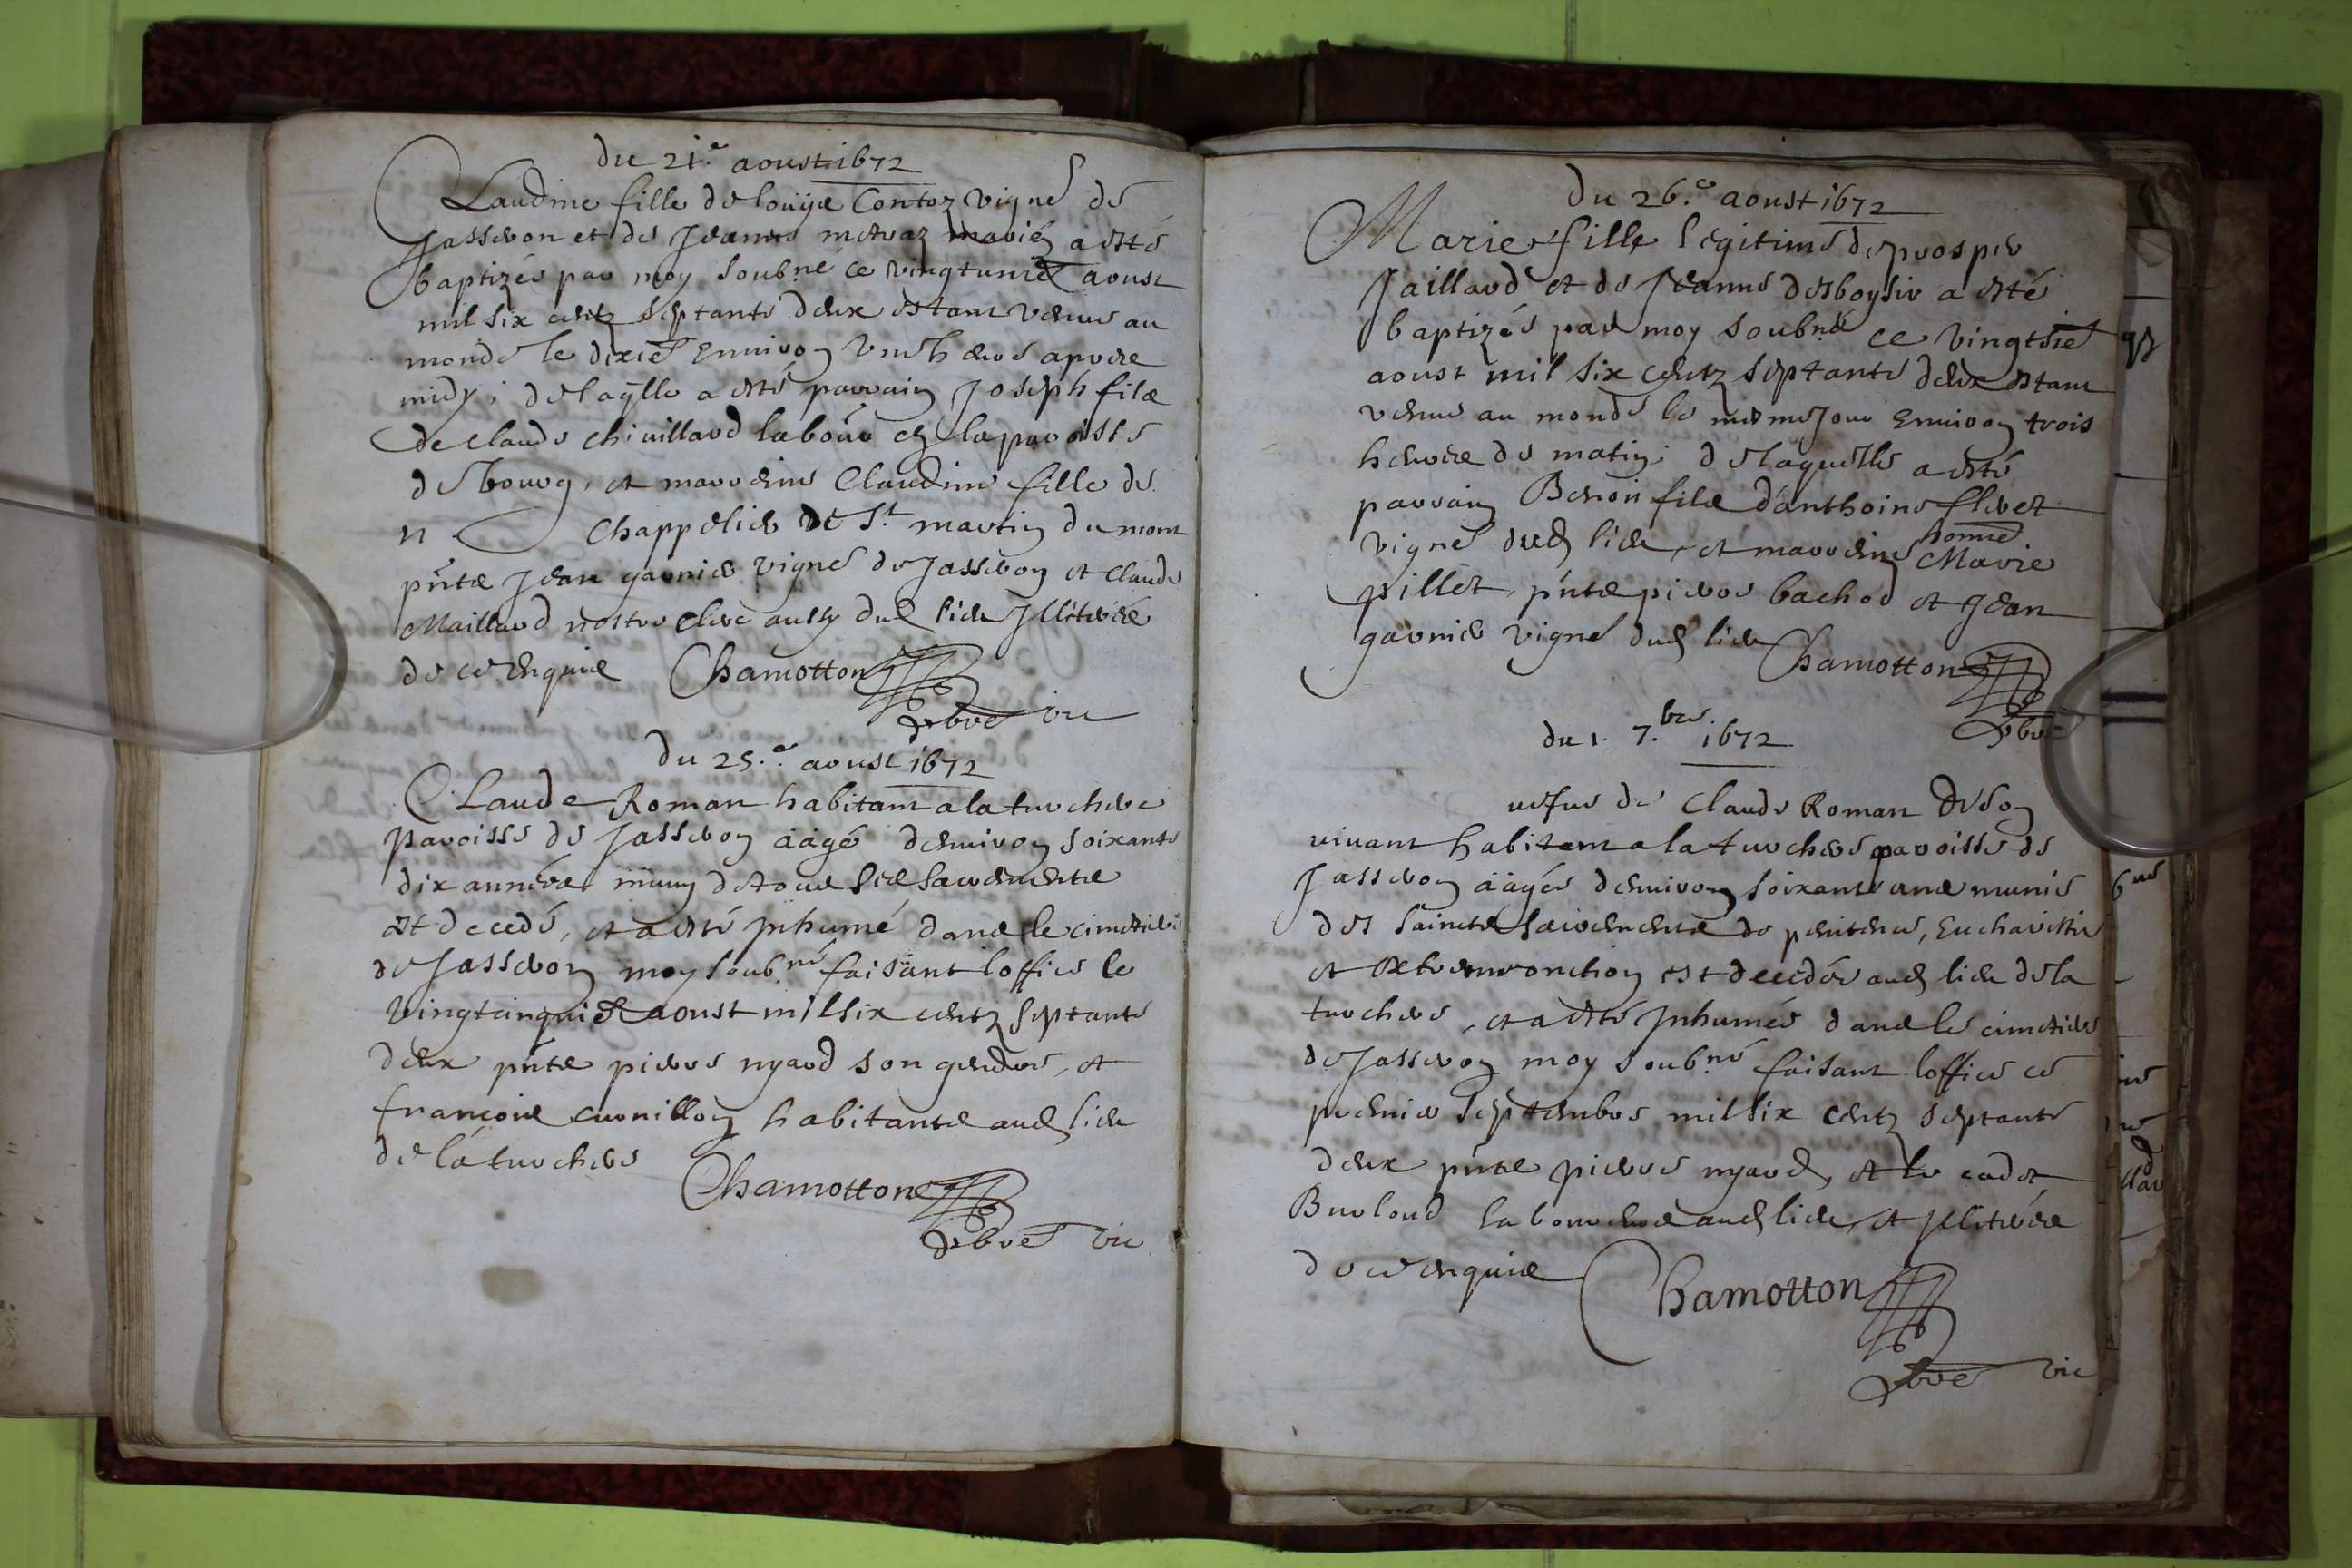 du 21.e aoust 1672
Claudine fille de louÿs Contoz vigné de
Jasseron et de Jeanne metraz mariéz a esté
baptizée par moy soubné ce vingtunié aoust
mil six centz septante deux estant venue au
monde le dixié Environ unsheures apres
midy; delaqlle a esté parrain Joseph fils
de claude chivillard labour en la paroisse
de bourg, et marreine Claudine fille de
n chappelier de St martin du mont
pnts Jean garnier vigné de Jasseron et claude
Maillard nostre clerc aussy dud lieu Illiterés
de ce Enquis Chamotton
pbre vic
du 25.e aoust 1672
Claude Roman habitant a la turchere
paroisse de Jasseron aâgé denviron soixante
dix années muny de tous ses sacrements
est decedé, et a esté Inhumé dans le cimetiere
de Jasseron moy soubné faisant loffice le
vingtcinquié aoust mil six centz septante
deux pnts pierre nyard son gendre, et
françois curnillon habitants aud lieu
de la turchere
Chamotton
pbre vic
du 26.e aoust 1672
Marie fille legitime de prosper
Jaillard et de Jeanne desboysir a esté
baptizée par moy soubné ce vingtsié
aoust mil six centz septante deux estant
venue au monde le mesme Jour Environ trois
heures du matin; delaquelle a esté
parrain Benoit fils danthoine flevet
vigné dud lieu, et marreine honné Marie
pillet, pnts pierre bachod et Jean
garnier vigné dud lieu Chamotton
pbre
du 1. 7.bre 1672
vefue de Claude Roman de son
vivant habitant a la turchere paroisse de
Jasseron aâgée denviron soixante ans munie
des saincts sacrements de penitence, Eucharistie
et Extremeonction est decedée aud lieu dela
turchere, et a esté Inhumée dans le cimetiere
de Jasseron moy soubné faisant loffice ce
premier septembre mil six centz septante
deux pnts pierre nyard, et le cadet
Burloud laboureurs aud lieu, et Illiterés
de ce enquis Chamotton
pbre vic